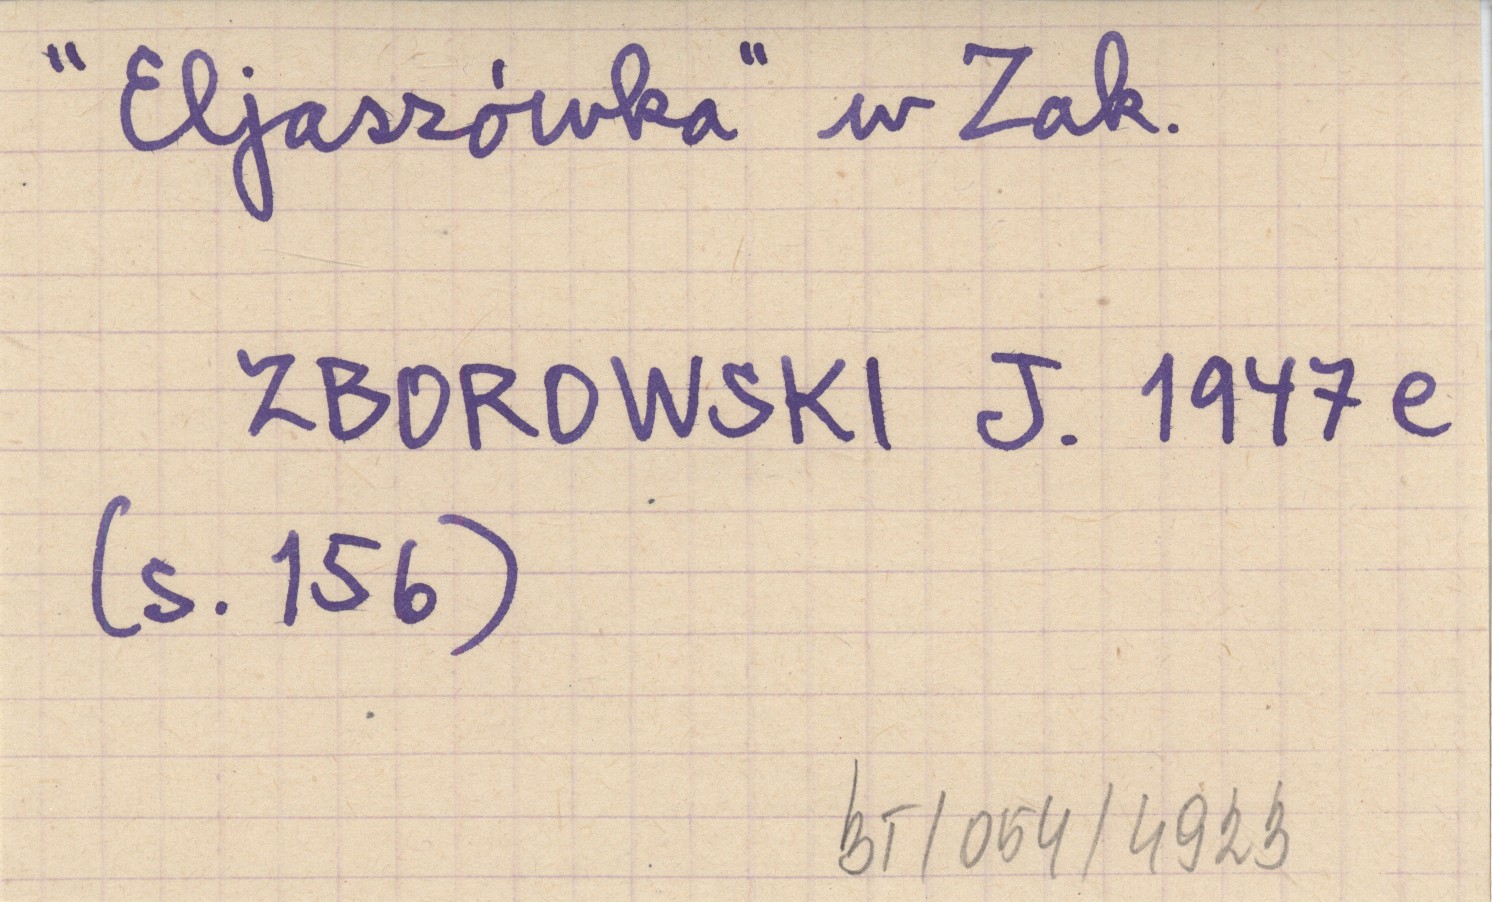 "Eljaszówka" w Zak.
ZBOROWSKI J. 1947 e
(s. 156)
BT/054/4923